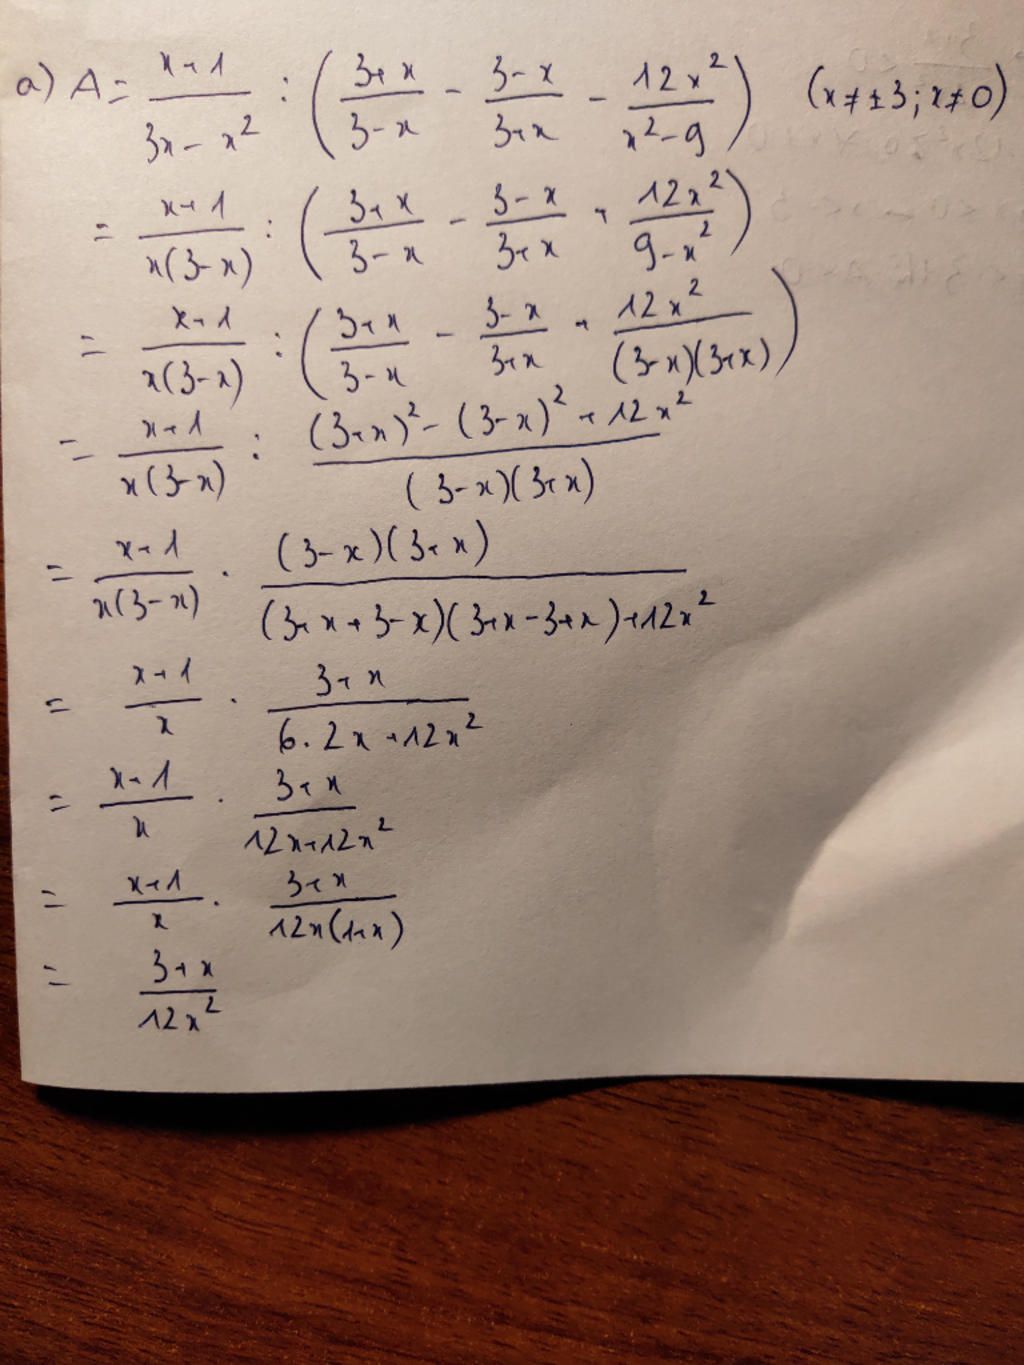 a) A = \frac{x+1}{3x-x^2} : \left( \frac{3+x}{3-x} - \frac{3-x}{3+x} - \frac{12x^2}{x^2-9} \right) (x≠±3; x≠0)
= \frac{x+1}{x(3-x)} : \left( \frac{3+x}{3-x} - \frac{3-x}{3+x} + \frac{12x^2}{9-x^2} \right)
= \frac{x+1}{x(3-x)} : \left( \frac{3+x}{3-x} - \frac{3-x}{3+x} + \frac{12x^2}{(3-x)(3+x)} \right)
= \frac{x+1}{x(3-x)} : \frac{(3+x)^2-(3-x)^2+12x^2}{(3-x)(3+x)}
= \frac{x+1}{x(3-x)} . \frac{(3-x)(3+x)}{(3+x+3-x)(3+x-3+x)+12x^2}
= \frac{x+1}{x} . \frac{3+x}{6.2x+12x^2}
= \frac{x+1}{x} . \frac{3+x}{12x+12x^2}
= \frac{x+1}{x} . \frac{3+x}{12x(1+x)}
= \frac{3+x}{12x^2}